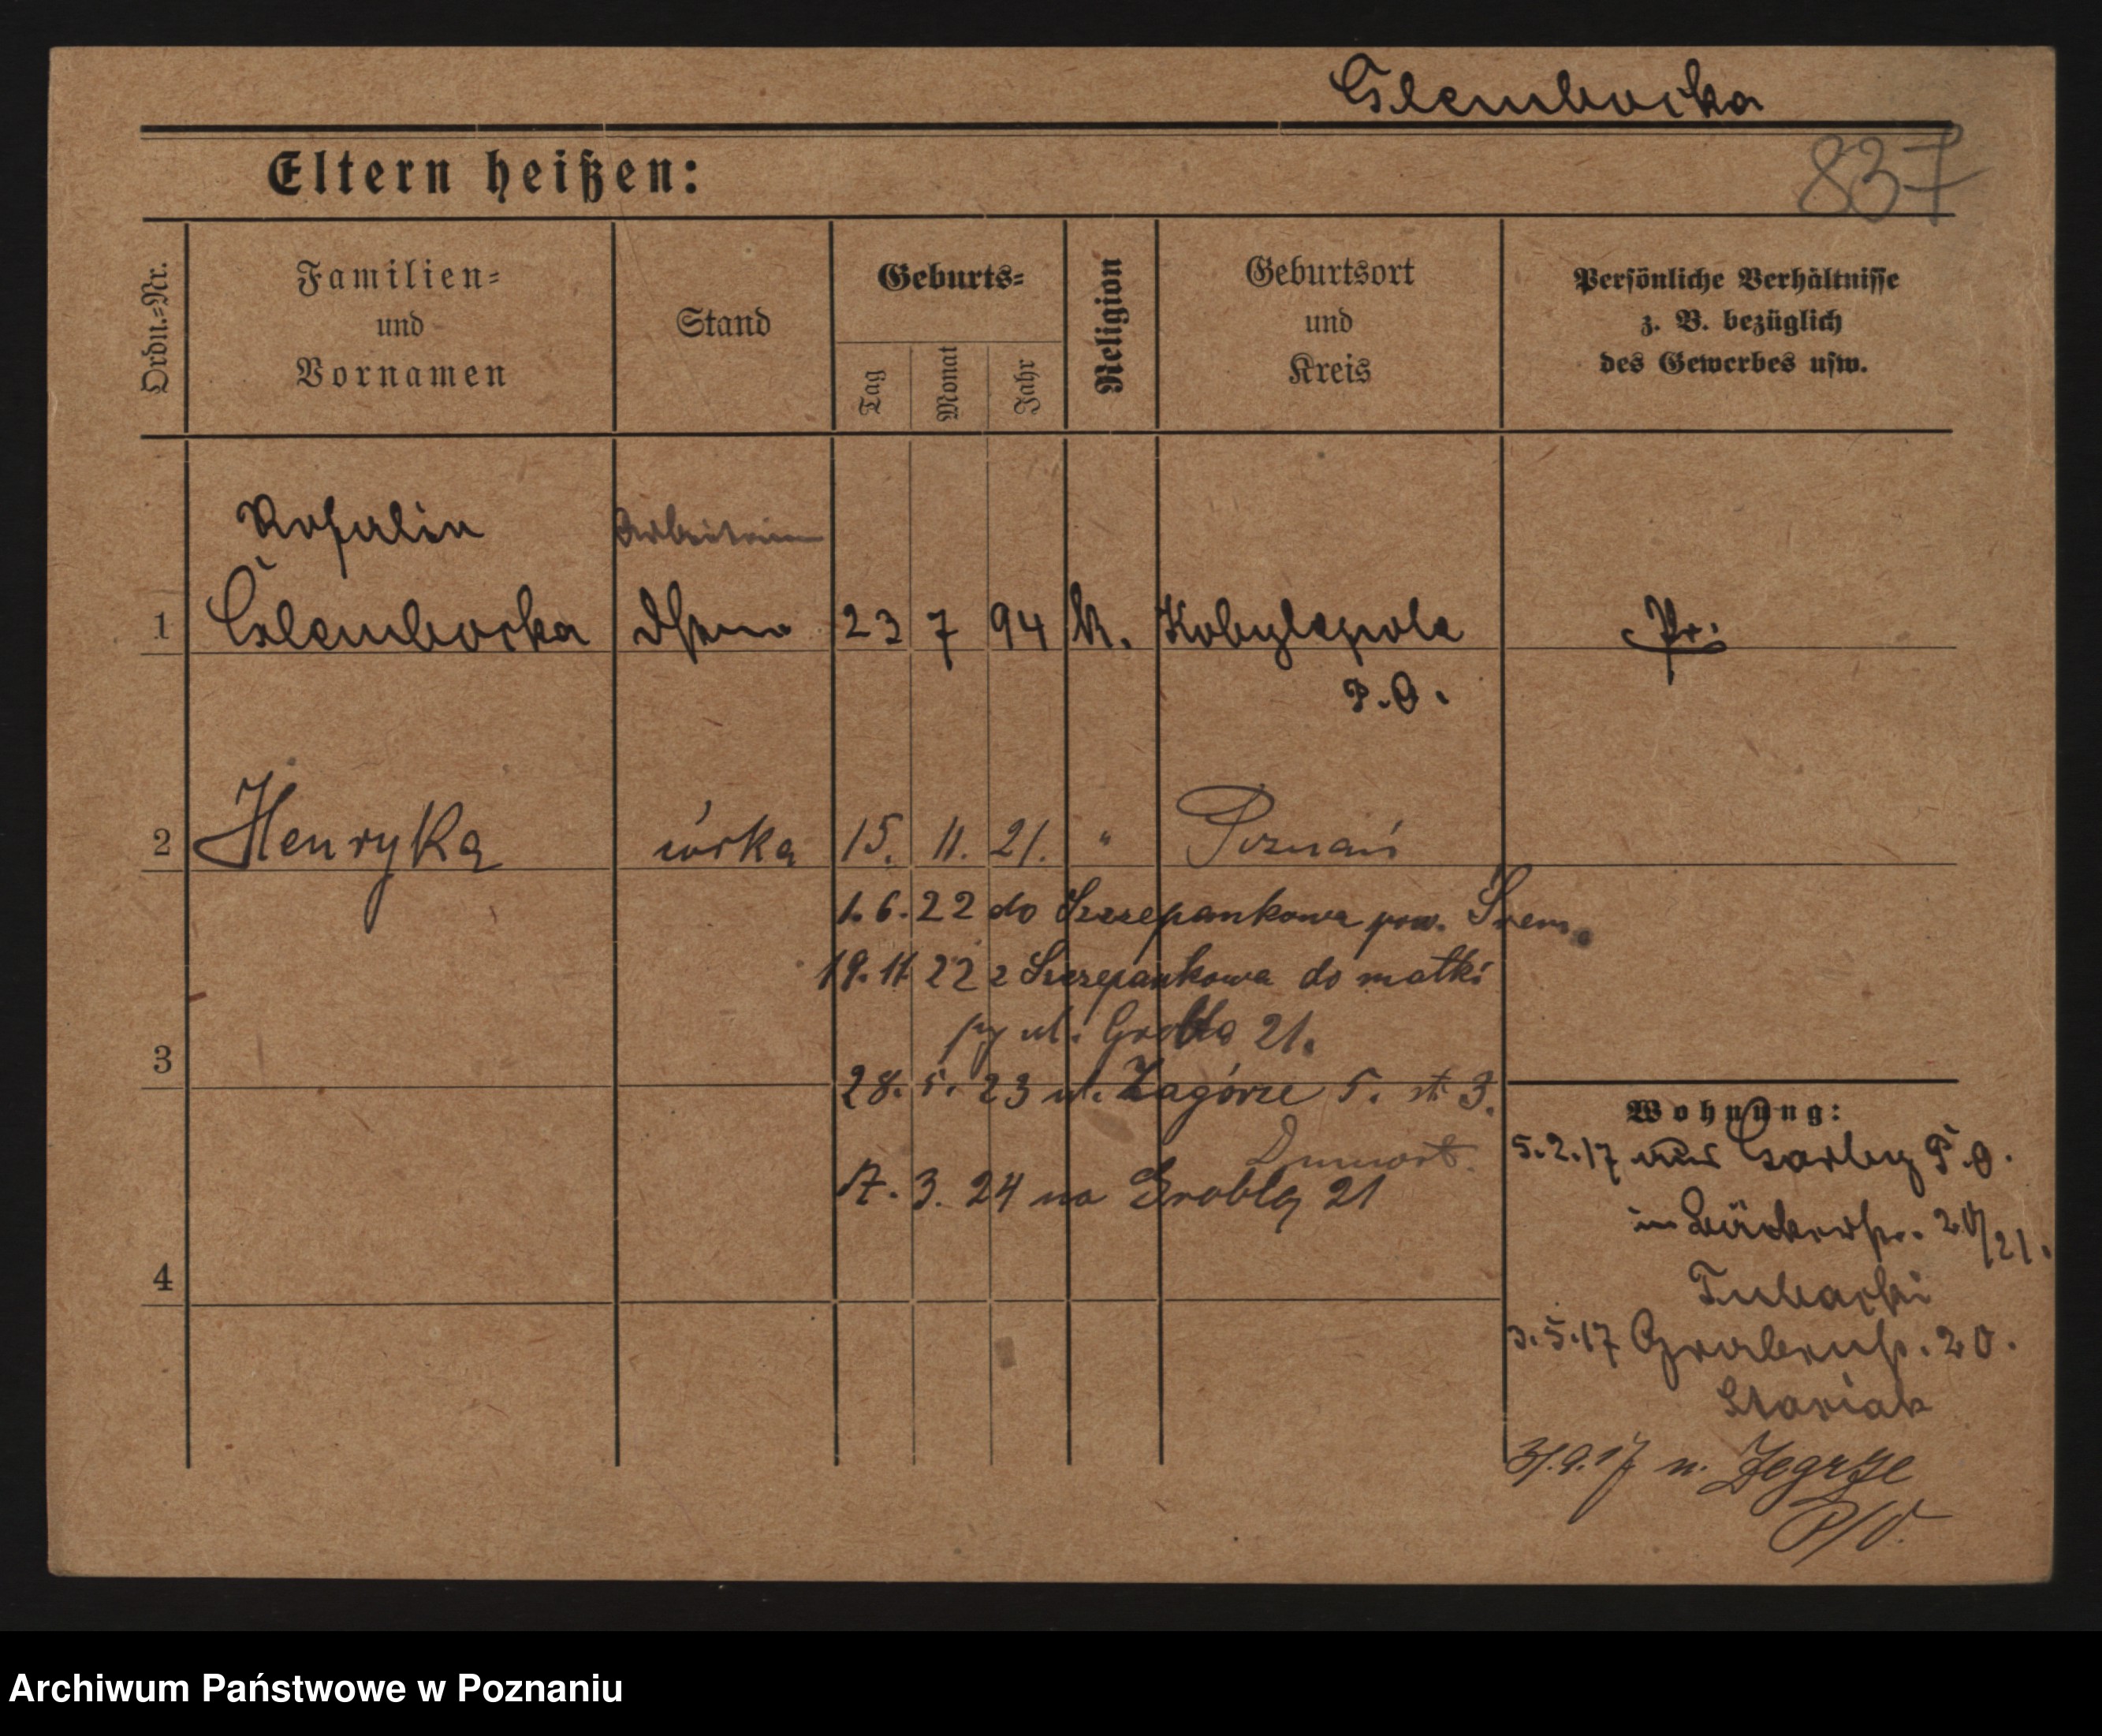 Glembocka
837
Eltern heißen:
Ordn.-Nr.
Familien-
und
Vornamen
Stand
Geburts-
Tag
Monat
Jahr
Religion
Geburtsort
und
Kreis
Persönliche Verhältnisse
z. B. bezüglich
des Gewerbes usw.
Rosalia Arbeiterin
1 Glembocka 23 7 94 K. Kobylepole Pr.
P. O.
2 Henryka córka 15. 11. 21. " Poznań
1. 6. 22 do Szczepankowa pow. Śrem.
19. 11 22 z Szczepankowa do matki
ul. Grobla 21.
3
28. 5. 23 ul. Zagórze 5. 3.
Wohnung:
5.2.17 aus P. O.
17. 3. 24 na Groblą 21
in Bäckerstr. 20/21.
4
3.5.17 Grabenstr. 20.
31.9.17 n. Zegrze
P/O.
Archiwum Państwowe w Poznaniu